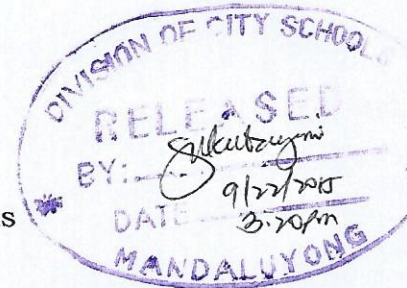 DIVISION OF CITY SCHOOLS
RELEASED
BY:
9/22/2015
DATE
3:20pm
s
MANDALUYONG